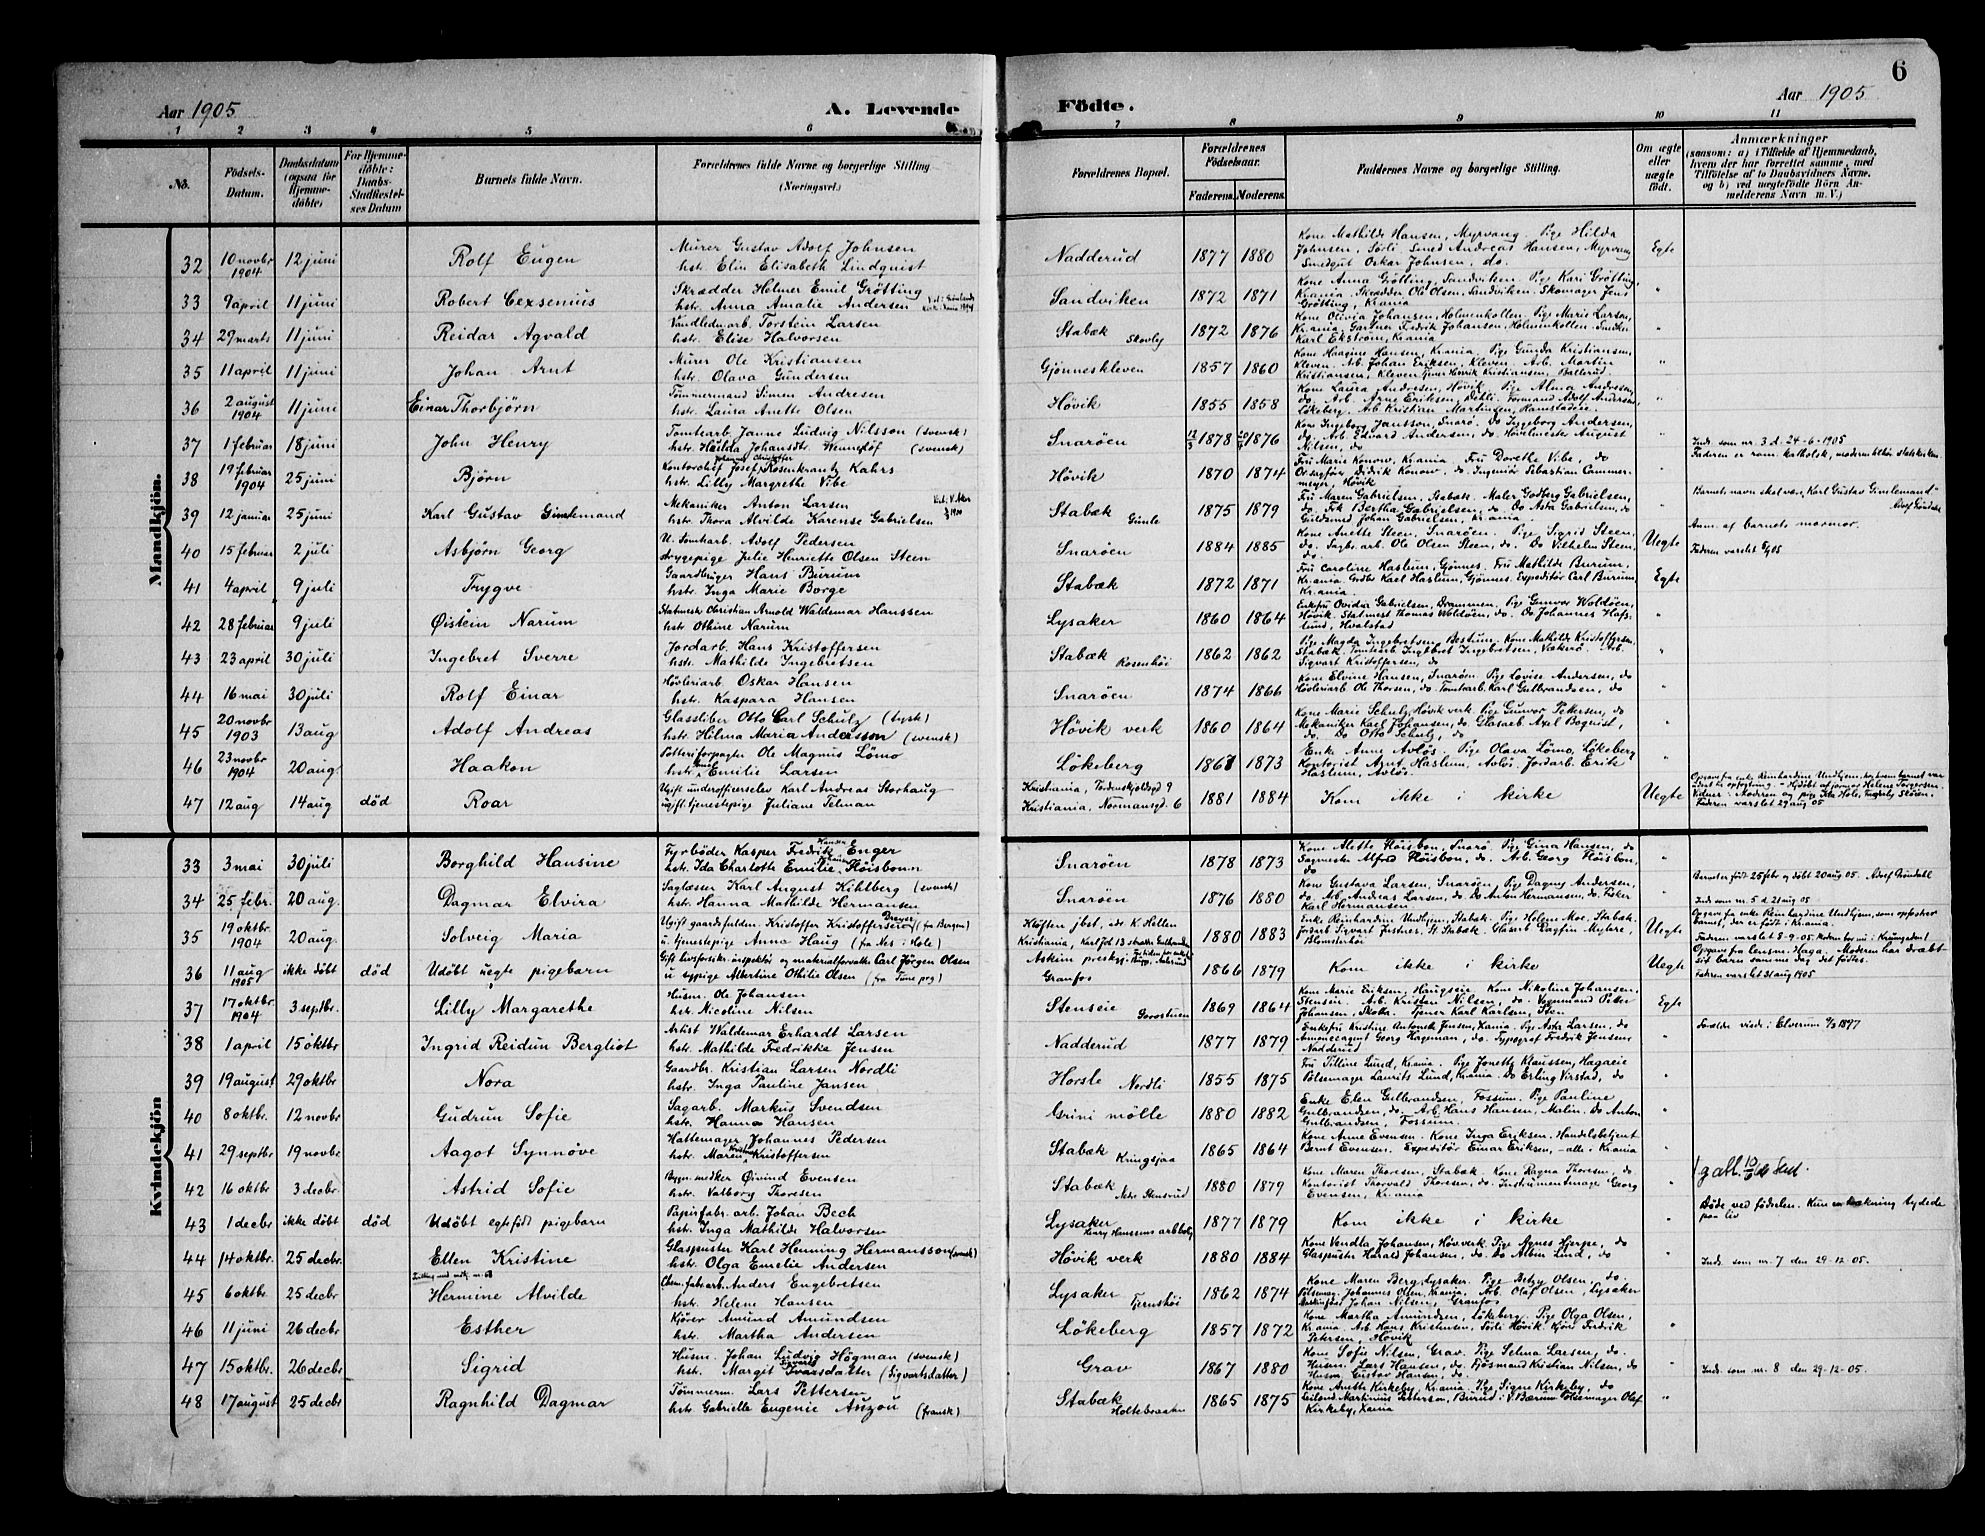 6
Aar 1905 A. Levende Födte. Aar 1905
1 2 3 4 5 6 7 8 9 10 11
No. Födsels-Datum. Daabsdatum (ogsaa for Hjemme-döbte) For Hjemme-döbte: Daabs-Stadfæstel-ses Datum Barnets fulde Navn. Forældrenes fulde Navne og borgerlige Stilling (Næringsvei.) Forældrenes Bopæl. Forældrenes Födselsaar. Faderens. Moderens. Faddernes Navne og borgerlige Stilling. Om ægte eller uægte födt. Anmærkninger (saasom: a) i Tilfælde af Hjemmedaab, hvem der har forrettet samme, med Tilföielse af to Daabsvidners Navne, og b) ved uægtefödte Börn An-melderens Navn m. V.)
Mandkjön.
32 10 novbr 1904 12 juni Rolf Eugen Murer Gustav Adolf Johnsen hstr. Elin Elisabeth Lindquist Nadderud 1877 1880 Kone Mathilde Hansen, Myrvang. Pige Hilda Johnsen, Sörli. Smed Andreas Hansen, Myrvang Smedgut Oskar Johnsen, do. Egte
33 9 april 11 juni Robert Cexsenius Skrædder Helmer Emil Grötting hstr. Anna Amalie Andersen Sandviken 1872 1871 Kone Anna Grötting, Sandviken. Pige Kari Grötting, Kr.ania. Skrædder Ole Olsen, Sandviken. Skomager Jens Grötting, Kr.ania "
34 29 marts 11 juni Reidar Agvald Vandledn.arb. Torstein Larsen hstr. Elise Halvorsen Stabæk Skovly 1872 1876 Kone Olivia Johansen, Holmenkollen. Pige Marie Larsen, Kr.ania. Gartner Fredrik Johansen, Holmenkollen. Snedker Karl Ekström, Kr.ania "
35 11 april 11 juni Johan Arnt Murer Ole Kristiansen hstr. Olava Gundersen Gjönneskleven 1857 1860 Kone Haagine Hansen, Kr.ania. Pige Gunda Kristiansen, Kleven. Arb. Johan Eriksen, Kleven. Arb. Martin Kristiansen, Kleven. Henrik Kristiansen, Ballerud "
36 2 august 1904 11 juni Einar Thorbjörn Tömmermand Simen Andresen hstr. Laura Anette Olsen Hövik 1855 1858 Kone Laura Andresen, Hövik. Pige Alma Andresen, do. Arb. Arne Eriksen, Dehli. Formand Adolf Andersen, Lökeberg. Arb. Kristian Martinsen, Ramstadsie. "
37 1 februar 18 juni John Henry Tomtearb. Janne Ludvig Nilsson (svensk) hstr. Hulda Johansdtr. Wennlöf (svensk) Snaröen 1878 1876 Kone Ingeborg Jantson, Snarö. Do Ingeborg Andersen, do. Arb. Edvard Andersen, do. Hövlmester August Nilsen, do " Inds. som nr. 3 d. 24-6-1905
38 19 februar 1904 25 juni Björn Kontorchef Josef Johannes Christoffer Rosenkrantz Kahrs hstr. Lilly Margrethe Vibe Hövik 1870 1874 Fru Marie Konow, Kr.ania. Fru Dorethe Vibe, do. O.r.sagförer Didrik Konow, do. Ingeniör Sebastian Cammermeyer, Hövik " Faderen er rom. katholsk, moderen tilhör statskirken.
39 12 januar 25 juni Karl Gustav Gimlemand Mekaniker Anton Larsen hstr. Thora Alvilde Karense Gabrielsen Stabæk Gimle 1875 1879 Fru Maren Gabrielsen, Stabæk. Maler Godberg Gabrielsen, do. Frk Bertha Gabrielsen, do. Do Asta Gabrielsen, do Guldsmed Johan Gabrielsen, Kr.ania. " Barnets navn skal være Karl Gustav Gimlemand Adolf Gröndahl
40 15 februar 2 juli Asbjörn Georg U. Tomtearb. Adolf Pedersen Julie Henriette Olsen Steen Snaröen 1884 1885 Kone Anette Steen, Snaröen. Pige Sigrid Steen, do. Sagbr. arb. Ole Olsen Steen, do. Do Vilhelm Steen, do Uegte Anm. af barnets mormor. Faderen varslet 5/7 05
41 4 april 9 juli Trygve Gaardbruger Hans Burum hstr. Inga Marie Borge Stabæk 1872 1871 Fru Caroline Haslum, Gjönnes. Fru Mathilde Burum, Kr.ania. Grdbr Karl Haslum, Gjönnes. Expeditör Carl Burum, Kr.ania Egte
42 28 februar 9 juli Öistein Narum Statmestr. Christian Arnold Waldemar Hanssen hstr. Othine Narum Lysaker 1860 1864 Enkefru Ovidia Gabrielsen, Drammen. Pige Gunvor Woldöen, Hövik. Statmest. Thomas Woldöen, do. Do Johannes Hafslund, Hvalstad "
43 23 april 30 juli Ingebret Sverre Jordarb. Hans Kristoffersen hstr. Mathilde Ingebretsen Stabæk Rosenhöi 1862 1862 Pige Magda Ingebretsen, Bestum. Kone Mathilde Kristoffersen, Stabæk. Tomtearb Ingebret Ingebretsen, Vækerö. Arb. Sigvart Kristoffersen, do "
44 16 mai 30 juli Rolf Einar Hövleriarb. Oskar Hansen hstr. Kaspara Hansen Snaröen 1874 1866 Kone Elvine Hansen, Snaröen. Pige Lovise Andersen, do Hövleriarb Ole Thorsen, do. Tomtearb. Karl Gulbrandsen, do "
45 20 novbr 1903 13 aug Adolf Andreas Glassliber Otto Carl Schulz (tysk) hstr. Hilma Maria Andersson (svensk) Hövik verk 1860 1864 Kone Marie Schulz, Hövik verk. Pige Gunvor Pettersen, do Mekaniker Karl Johansen, do. Glasarb. Axel Boquist, do. Do Otto Schulz, do "
46 23 novbr 1904 20 aug. Haakon Potteriforpagter Ole Magnus Lömo hstr. Emilie Larsen Lökeberg 1867 1873 Enke Anne Avlös. Pige Olava Lömo, Lökeberg Kontorist Arnt Haslum, Avlös. Jordarb. Erik Haslum, Avlös. "
47 12 aug 14 aug död Roar Ugift underofficerselev Karl Andreas Storhaug ugift tjenestepige Juliane Telman Kristiania, Tordenskjoldsgd 9 Kristiania, Normansgd. 6 1881 1884 Kom ikke i kirke Uegte Opgave fra enke Reinhardine Undhjem, hos hvem barnet var Faderen varslet 29 aug 05
Kvindekjön
33 3 mai 30 juli Borghild Hansine Fyrböder Kasper Fredrik Hansen Enger hstr. Ida Charlotte Emilie Höisbonn Snaröen 1878 1873 Kone Alette Höisbon, Snarö. Pige Gina Hansen, do Sagmester Alfred Höisbon, do. Arb. Georg Höisbon, do "
34 25 febr. 20 aug. Dagmar Elvira Saglæsser Karl August Kihlberg (svensk) hstr. Hanna Mathilde Hermansen Snaröen 1876 1880 Kone Gustava Larsen, Snaröen. Pige Dagny Andersen, do. Arb Andreas Larsen, do. Do Anton Hermansen, do. Fisker Karl Hermansen " Barnet er födt 25 febr og döbt 20 aug 05. Adolf Gröndahl Inds som nr. 5 d. 21 aug 05
35 19 oktbr. 1904 20 aug. Solveig Maria Ugift gaardsfulden. Kristoffer Kristoffersen Dreyer (fra Bergen) u. tjenestepige Anna Haug (fra Nes i Hole) Klöften jbst, ds K. Hellen Kristiania, Karl Joh 13 1880 1883 Enke Reinhardine Undhjem, Stabæk. Pige Helen Moe, Stabæk. Jordarb. Sigvart Jestnes, St. Stabæk. Glasarb Dagfin Myhre, Blomsterhö Uegte Opgave fra enke Reinhardine Undhjem, som opfostrer barnet, der er födt i Kr.ania. Faderen varslet 8-9-05
36 11 aug 1905 ikke döbt död Udöbt uegte pigebarn Gift livsforsikr. inspektör og materialforvalter Carl Jörgen Olsen u sypige Albertine Othilie Olsen (fra Tune prg) Askim Granfos 1866 1879 Kom ikke i kirke Uegte Opgave fra lensm. Haga. Moderen har dræbt sit barn samme dag det födtes. Faderen varslet 31 aug 1905
37 17 oktbr. 1904 3 septbr. Lilly Margarethe Husm. Ole Johansen hstr. Nicoline Nilsen Stenseie Gorostuen 1869 1864 Kone Marie Eriksen, Haugseie. Kone Nikoline Johansen, Stenseie. Arb. Kristen Nilsen, do. Vognmand Petter Johansen, Skoba. Tjener Karl Karlsen, Sten Egte
38 1 april 15 oktbr Ingrid Reidun Bergliot Artist Waldemar Erhardt Larsen hstr. Mathilde Fredrikke Jensen Nadderud 1877 1879 Enkefru Kristine Antonette Jensen, Xania. Pige Asta Larsen, do Annonceagent Georg Hageman, do. Typograf Fredrik Jensen, Nadderud " Forældre viede i Elverum 1897
39 19 august 29 oktbr Nora Gaardbr. Kristian Larsen Nordli hstr. Inga Pauline Jansen Horsle Nordli 1855 1875 Fru Tilline Lund, Kr.ania. Pige Jonette Klaussen, Hagaeie Pölsemager Laurits Lund, Kr.ania. Do Erling Virstad, do "
40 8 oktbr. 12 novbr Gudrun Sofie Sagarb. Markus Svendsen hstr. Hanna Hansen Grini mölle 1880 1882 Enke Elen Gulbrandsen, Fossum. Pige Pauline Gulbrandsen, do. Arb. Hans Hansen, Melin. Do Anton Gulbrandsen, Fossum. "
41 29 septbr 19 novbr Aagot Synnöve Hattemager Johannes Pedersen hstr. Maren Kristine Kristoffersen Stabæk Kringsjaa 1865 1864 Kone Anne Evensen. Kone Inga Eriksen. Handelsbetjent Bernt Evensen. Expeditör Einar Eriksen, - alle i Kr.ania "
42 16 oktbr 3 decbr. Astrid Sofie Bygn.snedker Öivind Evensen hstr. Valborg Thoresen Stabæk Nedre Stensrud 1880 1879 Kone Maren Thoresen, Stabæk. Kone Ragna Thoresen, do. Kontorist Thorvald Thoresen, do. Instrumentmager Georg Evensen, Kr.ania "
43 1 decbr ikke döbt död Udöbt egtefödt pigebarn Papirfabr. arb. Johan Bech hstr. Inga Mathilde Halvorsen Lysaker 1877 1879 Kom ikke i kirke " Döde ved födselen. Kun en trækning tydede paa liv
44 14 oktbr. 25 decbr. Ellen Kristine Glaspuster Karl Henning Hermansson (svensk) hstr. Olga Emelie Andersen Hövik verk 1880 1884 Kone Vendla Johansen, Höv. verk. Pige Agnes Hjerpe, do Glaspuster Harald Johansen, do. Do Albin Lund, do " Inds. som nr. 7 den 29-12-05.
45 6 oktbr. 25 decbr Hermine Alvilde Chem. fabr. arb. Anders Engebretsen hstr. Helene Hansen Lysaker Fjernshöi 1862 1874 Kone Maren Berg, Lysaker. Pige Betzy Olsen, do. Pölsemag. Johannes Olsen, Kr.ania. Arb. Olaf Olsen, Lysaker Johan Nilsen, Granfos "
46 11 juni 26 decbr Esther Kjörer Amund Amundsen hstr. Martha Andersen Lökeberg 1857 1872 Kone Martha Amundsen, Lökeberg. Pige Olga Olsen, Kr.ania. Arb. Hans Kristensen, Sörli Hövik. Kjörer Fredrik Petersen, Hövik "
47 15 oktbr. 26 decbr Sigrid Husm. Johan Ludvig Högman (svensk) hstr. Margit Ivarsdatter (Sigvartsdatter) Grav 1867 1880 Kone Sofie Nilsen, Grav. Pige Selma Larsen, do. Husm. Lars Hansen, do. Fjösmand Kristian Nilsen, do Husm. Gustav Hansen, do. " Inds. som nr. 8 den 29-12-05.
48 17 august 25 decbr Ragnhild Dagmar Tömmerm. Lars Pettersen hstr. Gabrielle Eugenie Auzou (fransk) Stabæk Holtebraaten 1865 1875 Kone Anette Kirkeby, Kr.ania. Pige Signe Kirkeby, do Leilend. Martinius Petterson, Burud i V. Bærum. Pölsemager Olaf Kirkeby, Xania "